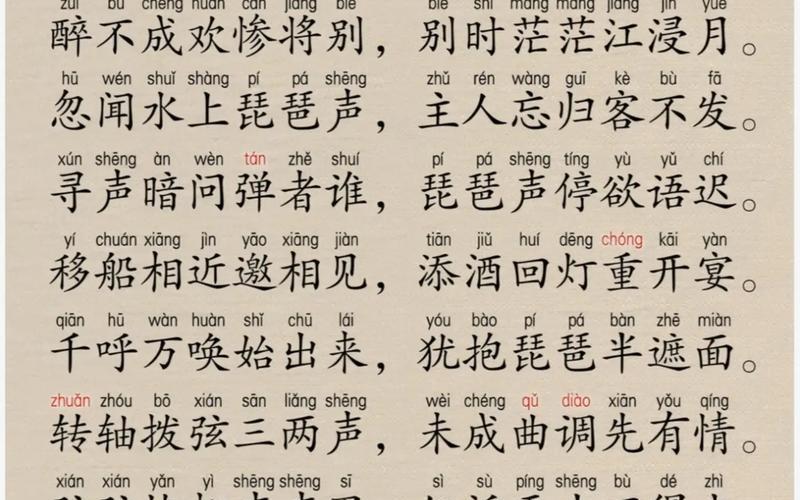 zuì bù chéng huān cǎn jiāng bié bié shí máng máng jiāng jìn yuè
醉不成欢惨将别，别时茫茫江浸月。
hū wén shuǐ shàng pí pá shēng zhǔ rén wàng guī kè bù fā
忽闻水上琵琶声，主人忘归客不发。
xún shēng àn wèn tán zhě shuí pí pá shēng tíng yù yǔ chí
寻声暗问弹者谁，琵琶声停欲语迟。
yí chuán xiāng jìn yāo xiāng jiàn tiān jiǔ huí dēng chóng kāi yàn
移船相近邀相见，添酒回灯重开宴。
qiān hū wàn huàn shǐ chū lái yóu bào pí pá bàn zhē miàn
千呼万唤始出来，犹抱琵琶半遮面。
zhuǎn zhóu bō xián sān liǎng shēng wèi chéng qǔ diào xiān yǒu qíng
转轴拨弦三两声，未成曲调先有情。
xián xián yǎn yì shēng shēng sī sì sù píng shēng bù dé zhì